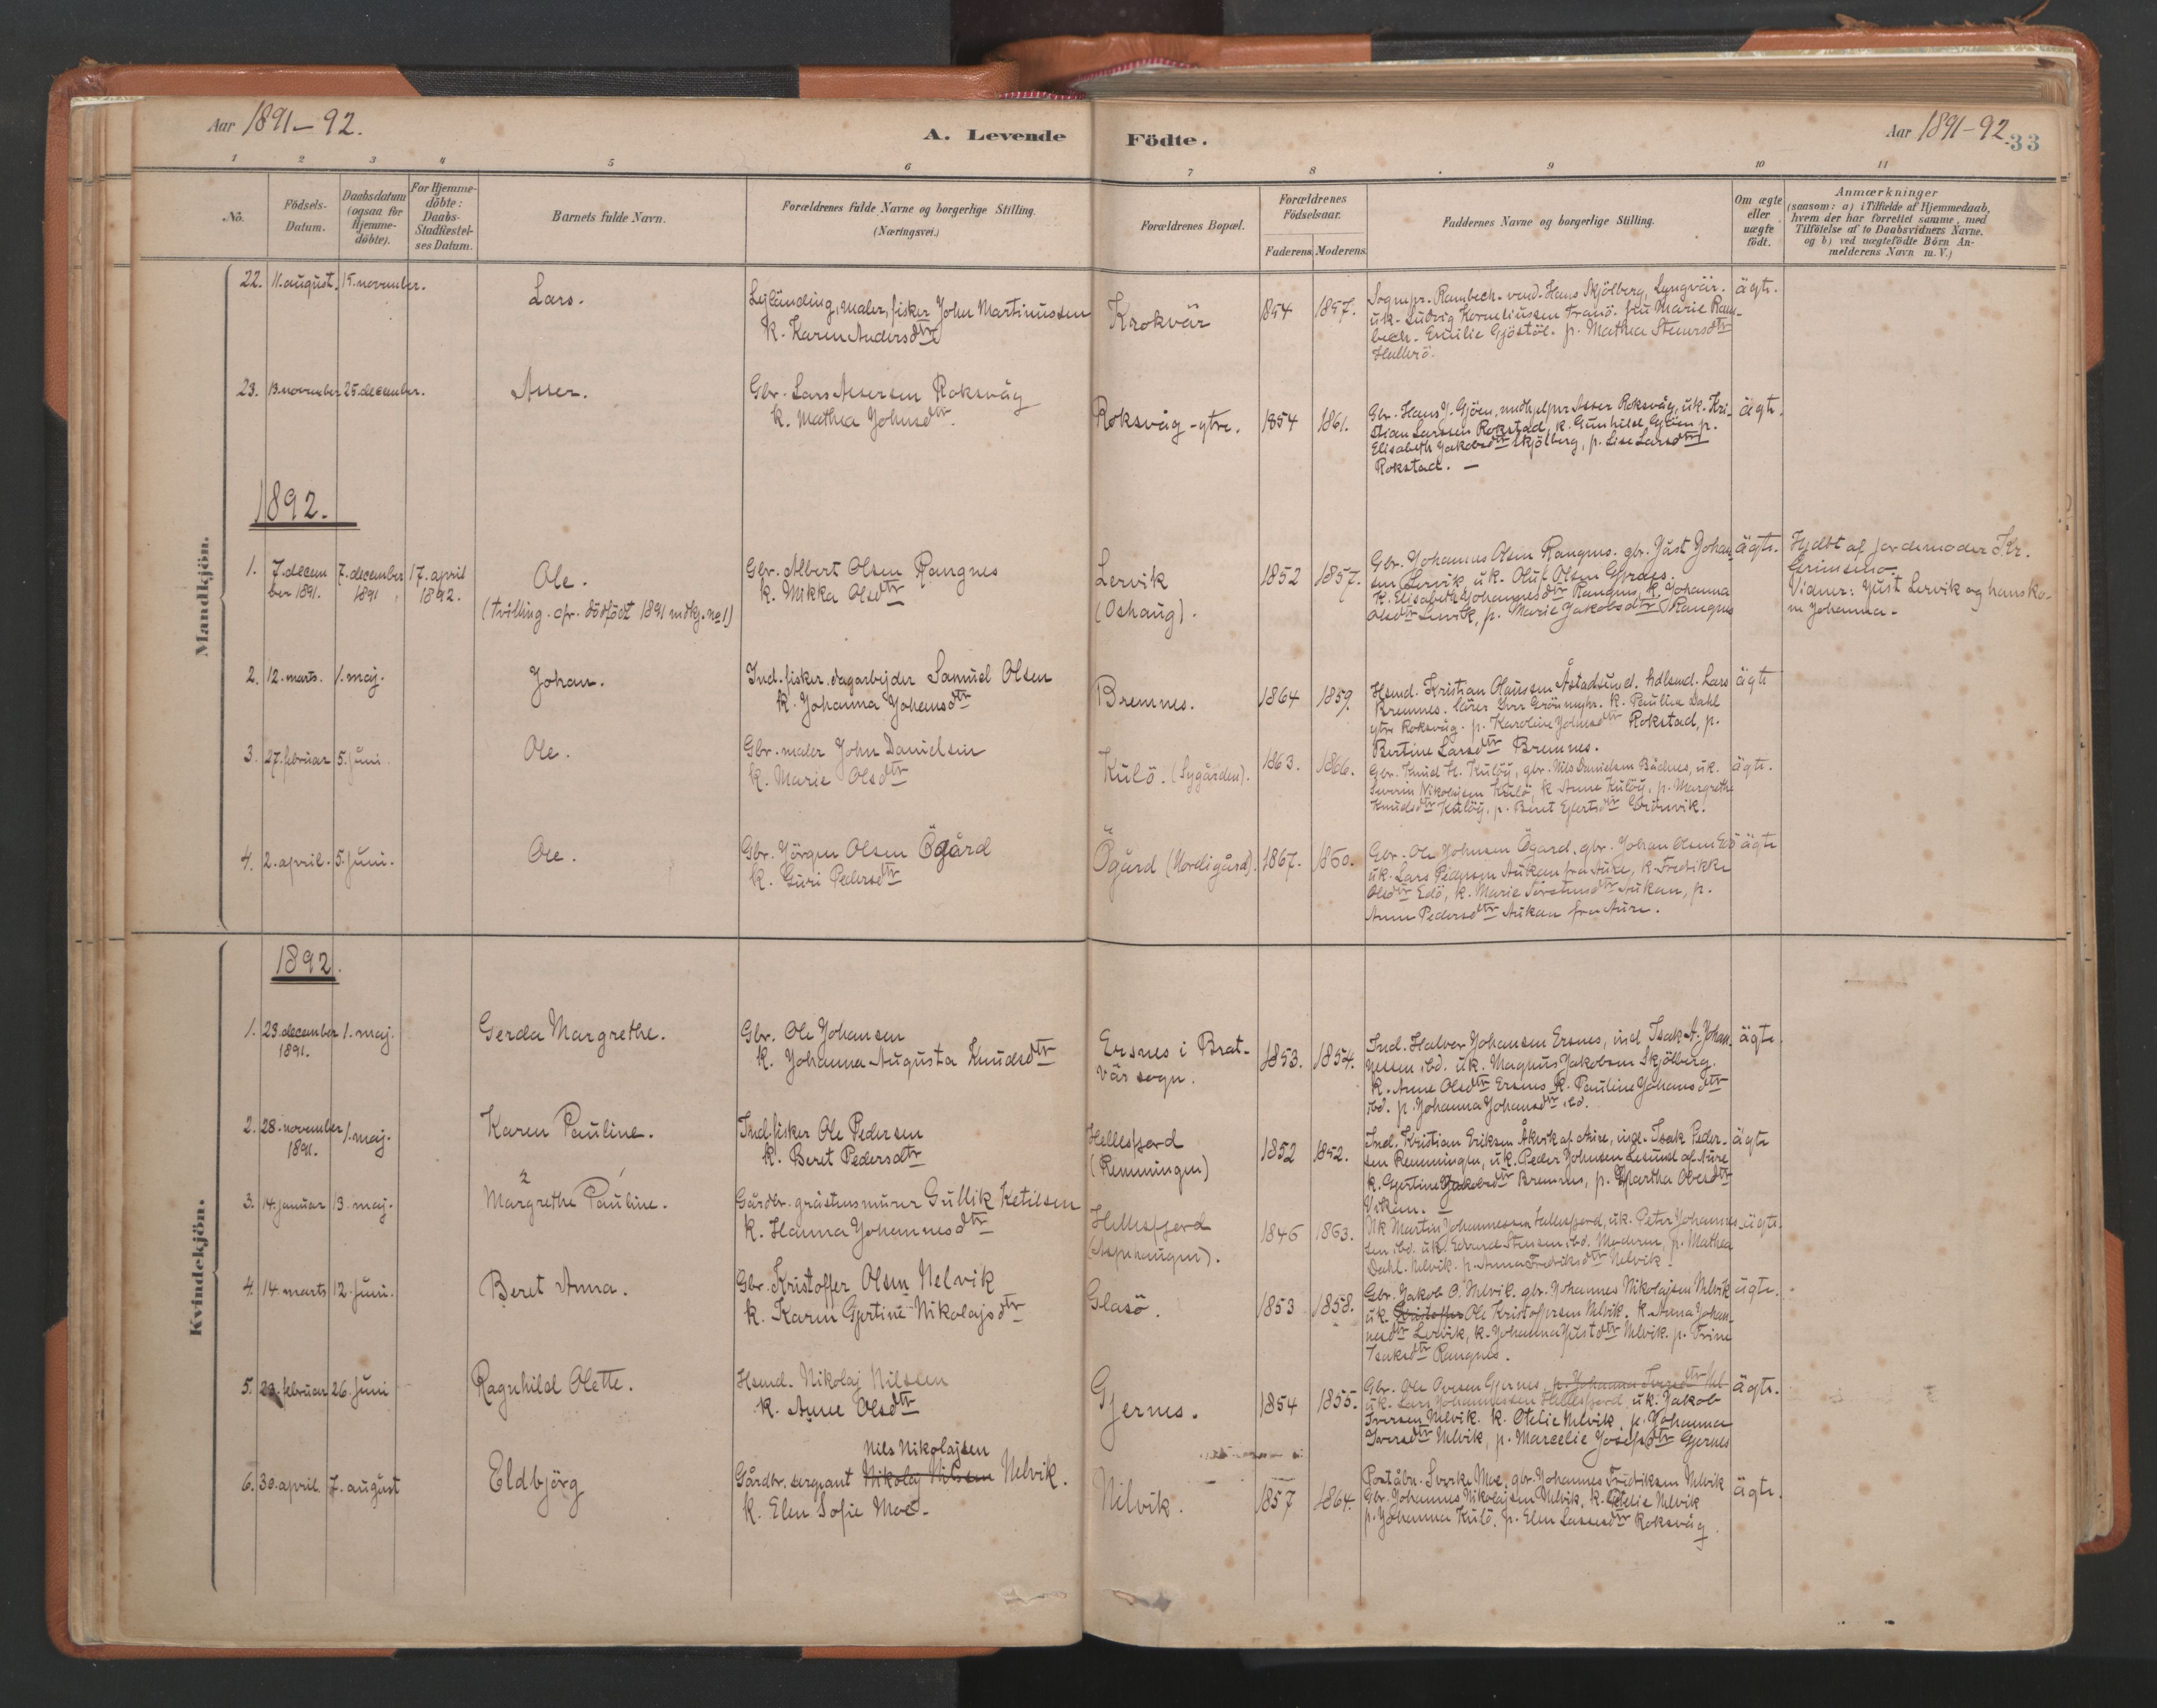 Aar 1891-92.
A. Levende Födte.
Aar 1891-92
33
1 2 3 4 5 6 7 8 9 10 11
No.
Födsels-Datum.
Daabsdatum (ogsaa for Hjemme-döbte).
For Hjemme-döbte: Daabs-Stadfæstel-ses Datum.
Barnets fulde Navn.
Forældrenes fulde Navne og borgerlige Stilling. (Næringsvei.)
Forældrenes Bopæl.
Forældrenes Födselsaar.
Faderens Moderens
Faddernes Navne og borgerlige Stilling.
Om ægte eller uægte födt.
Anmærkninger
(saasom: a) i Tilfælde af Hjemmedaab,
hvem der har forrettet samme, med
Tilföielse af to Daabsvidners Navne.
og b) ved uægtefödte Börn An-
melderens Navn m. V.)
Mandkjön.
22. 11. august. 15. november.
Lars.
maler, fisker John Martinussen
k. Karen Andersdtr
Krokvär
1854 1857.
Sognepr. Rambech. Hans Skjölberg, Lyngvär.
uk. Ludvig Korneliussen Tranö. fru Marie Ram-
bech. Emilie p. Mathea
ägte.
23. 13. november 25. december.
Asser.
Gbr. Lars Assersen Roksvåg
k. Mathea Johnsdtr.
Roksvåg - ytre.
1854 1861.
Gbr. Hans J. Gjöen, Asser Roksvåg, uk. Kri-
stian Larssen Rokstad, k. Gunhild Gjöen p.
Elisabeth Jakobsdtr Skjölberg, p. Lise Larsdtr
Rokstad. -
ägte.
1892.
1. 7. decem
ber 1891.
7. december
1891
17. april
1892.
Ole.
(tvilling. cfr. dödfödt 1891 mdkj. no 1)
Gbr. Albert Olsen Rangnes
k. Mikka Olsdtr
Lervik
(Oshaug).
1852 1857.
Gbr. Johannes Olsen Rangnes. gbr. Just Johan-
sen Lervik uk. Oluf Olsen Gjernes.
k. Elisabeth Johannesdtr Rangnes, k. Johanna
Olsdtr Lervik, p. Marie Jakobsdtr Rangnes
ägte.
Hjdbt af jordemoder Kr.
Grimsmo.
Vidner: Just Lervik og hans ko-
ne Johanna.
2. 12. marts. 1. maj.
Johan.
Ind. fisker. dagarbejder Samuel Olsen
k. Johanna Johansdtr
Bremnes.
1864 1859.
Hsmd. Kristian Olaussen Åstadsund. hdlsmd. Lars
Bremnes. lärer Iver Grönmyhr. k. Paulina Dahl
ytre Roksvåg. p. Karoline Johnsdtr Rokstad, p.
Bertine Larsdtr Bremnes.
ägte
3. 27. februar 5. juni
Ole.
Gbr. maler John Danielsen
k. Marie Olsdtr
Kulö. (Sygården).
1863. 1866.
Gbr. Knud H. Kulöy, gbr. Nils Danielsen Bådnes, uk.
Severin Nikolajsen Kulö, k Anne Kulöy, p. Margrethe
Knudsdtr Kulöy, p. Beret Ejertsdtr Grönvik.
ägte.
4. 2. april. 5. juni.
Ole.
Gbr. Jörgen Olsen Ögård
k. Guri Pedersdtr
Ögård (Nordigård).
1867. 1860.
Gbr. Ole Johnsen Ögard, gbr. Johan Olsen Edö
uk. Lars Pedersen Aukan fra Aure, k. Fredrikke
Olsdtr Edö, k. Marie Torstensdtr Aukan, p.
Anne Pedersdtr Aukan fra Aure.
ägte
Kvindekjön.
1892.
1. 23. december
1891.
1. maj.
Gerda Margrethe.
Gbr. Ole Johansen
k. Johanna Augusta Knudsdtr
Ersnes i Brat-
vär sogn.
1853. 1854.
Ind. Halvor Johansen Ersnes, ind Isak A. Johan-
nessen ibd. uk. Magnus Jakobsen Skjölberg.
k. Anne Olsdtr Ersnes k. Pauline Johansdtr
ibd. p. Johanna Johansdtr ibd.
ägte
2. 28. november
1891.
1. maj.
Karen Pauline.
Ind. fisker Ole Pedersen
k. Beret Pedersdtr
Hellesfjord
(Remmingen)
1852 1852.
Ind. Kristian Eriksen Åkvik af Aure, ind. Isak Peder-
sen Remmingen, uk. Peder Johnsen Lesund af Aure
k. Gjertine Jakobsdtr Bremnes, p. Martha
Vikan. -
ägte
3. 14. januar 13. maj.
2 1
Margrethe Pauline.
Gårdbr. gråstensmurer Gullik Ketilsen
k. Hanna Johannesdtr
Hellesfjord
(Aspehaugen).
1846 1863.
Uk Martin Johannessen Hellesfjord, uk. Peter Johannes-
sen ibd. uk. Edvard Stensen ibd. Moderen, p. Mathea
Dahl. Nelvik. p. Anna Fredriksdtr Nelvik.
ägte.
4. 14 marts 12. juni.
Beret Anna.
Gbr. Kristoffer Olsen Nelvik
k. Karen Gjertine Nikolajsdtr
Glasö.
1853 1858.
Gbr. Jakob O. Nelvik. gbr. Johannes Nikolajsen Nelvik
uk. Kristoffer Ole Kristoffersen Nelvik. k. Anna Johan-
nesdtr Lervik, k. Johanna Justdtr Nelvik. p. Trine
Isaksdtr Rangnes.
ägte.
5. februar 26. juni
Ragnhild Olette.
Hsmd. Nikolaj Nilssen
k. Anne Olsdtr
Gjernes.
1854 1855.
Gbr. Ole Ovesen Gjernes. p. Johanna Iversdtr Nel
uk. Lars Johannessen Hellesfjord, uk. Jakob
Iversen Nelvik. k. Otelie Nelvik p. Johanna
Iversdtr Nelvik, p. Marcelie Josefsdtr Gjernes
ägte.
6. 30. april. 7. august
Eldbjörg
Nils Nikolajsen
Gårdbr. sergeant Nikolaj Nilssen Nelvik.
k. Elen Sofie Moe.
Nelvik.
1857 1864.
Postabn. Sverke Moe. gbr. Johannes Fredriksen Nelvik
Gbr. Johannes Nikolajsen Nelvik, k. Otelie Nelvik
p. Johanna Kulö. p. Elen Lassesdtr Roksvåg.
ägte.